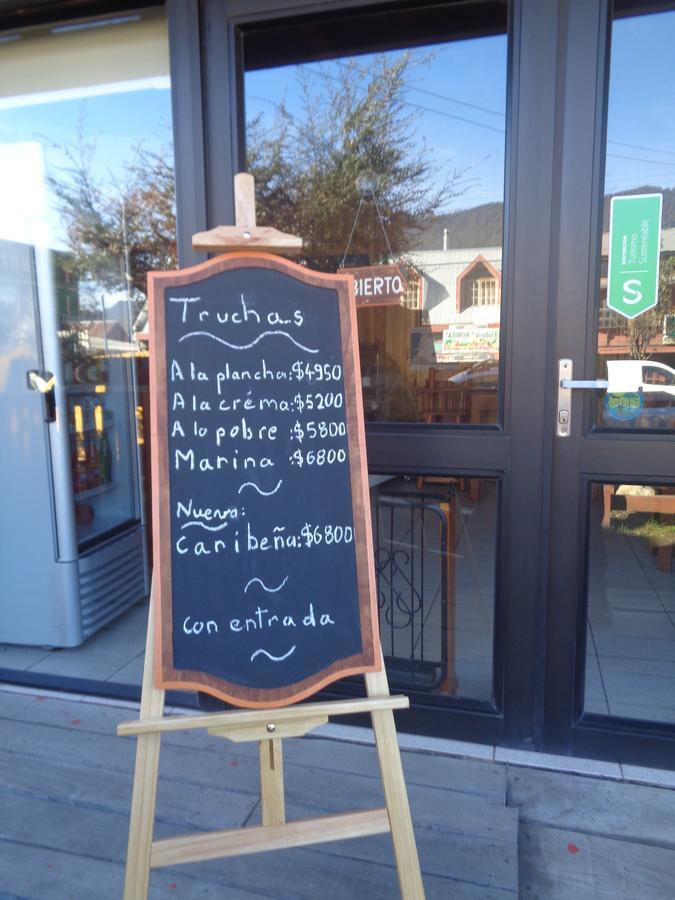 Truchas
A la plancha:$4950
A la créma:$5200
A lo pobre :$5800
Marina :$6800
Nuevo:
Caribeña:$6800
con entrada
BIERTO
DISTINCIÓN
Turismo
Sustentable
S